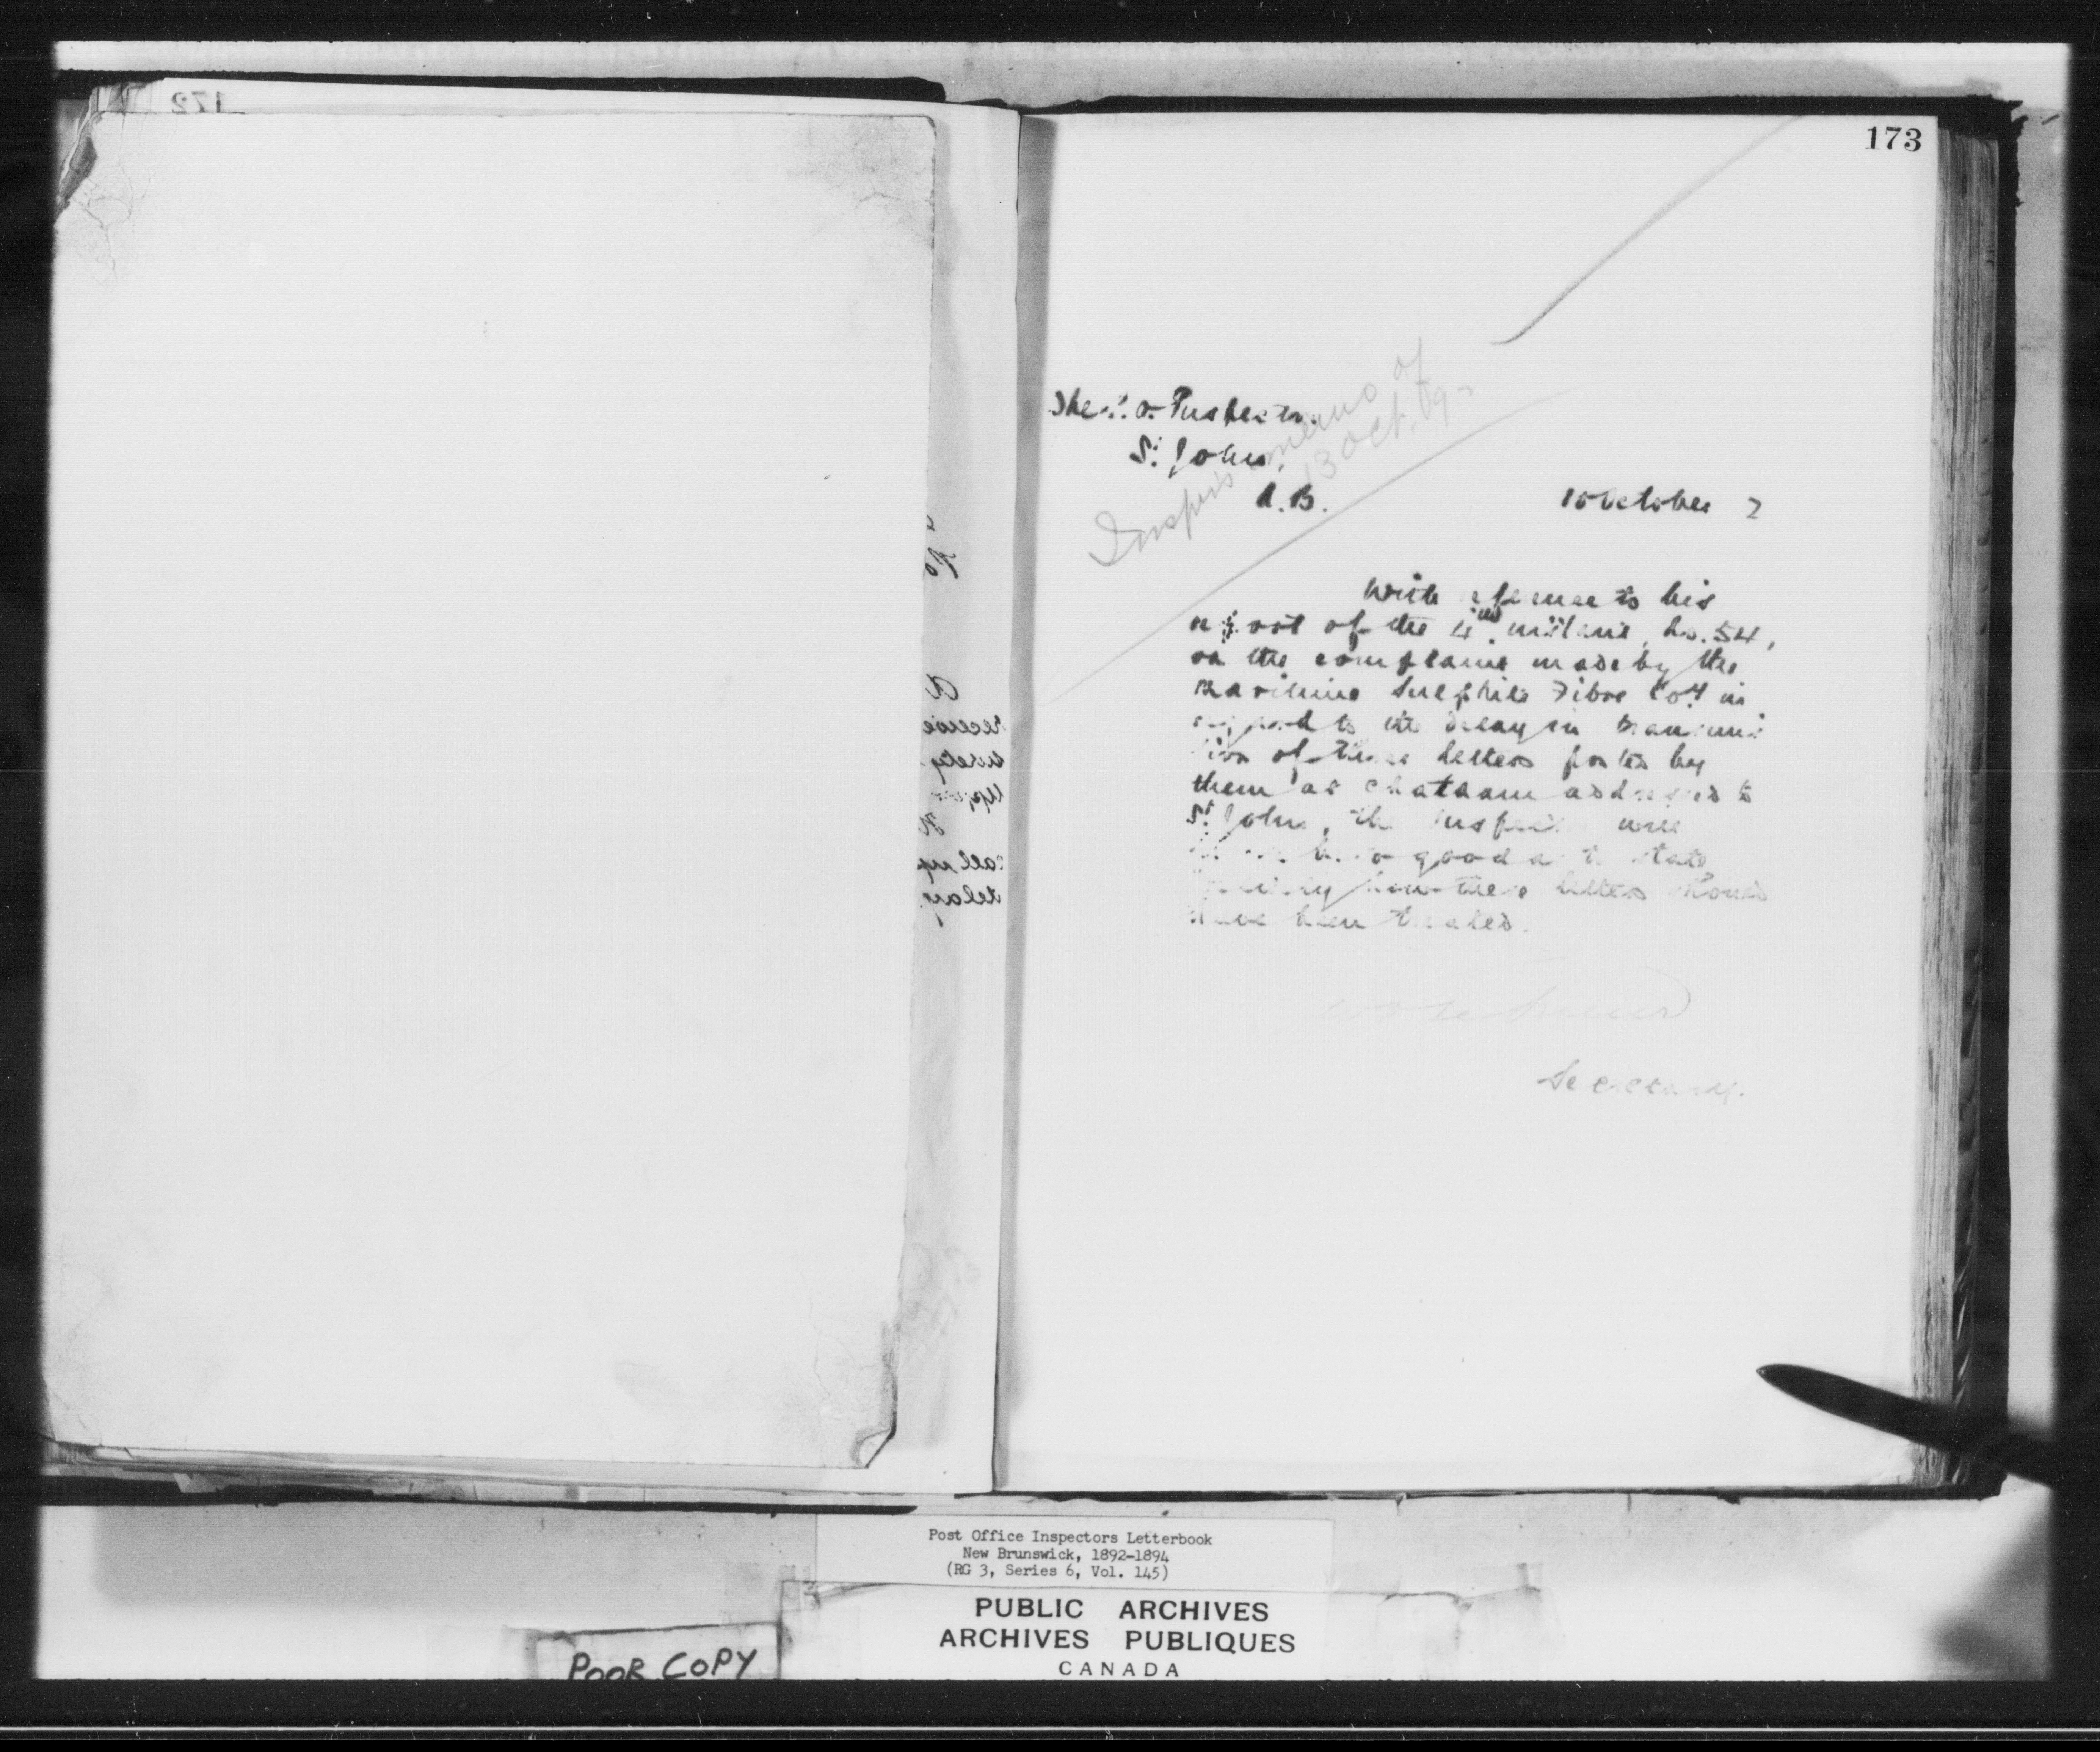 172
173
The P. O. Inspector.
St. John,
N.B.
Inspr's memo of
13 Oct. 9
10 October 2
With reference to his
report of the 4th instant, No. 54,
on the complaint made by the
Maritime Sulphite Fibre Coy in
regard to the delay in transmis
sion of these letters posted by
them at Chatham addressed to
St. John, the Inspector will
be so good as to state
how these letters should
have been treated.
Secretary.
receive
surety
call up
delay.
Post Office Inspectors Letterbook
New Brunswick, 1892-1894
(RG 3, Series 6, Vol. 145)
PUBLIC ARCHIVES
ARCHIVES PUBLIQUES
CANADA
POOR COPY